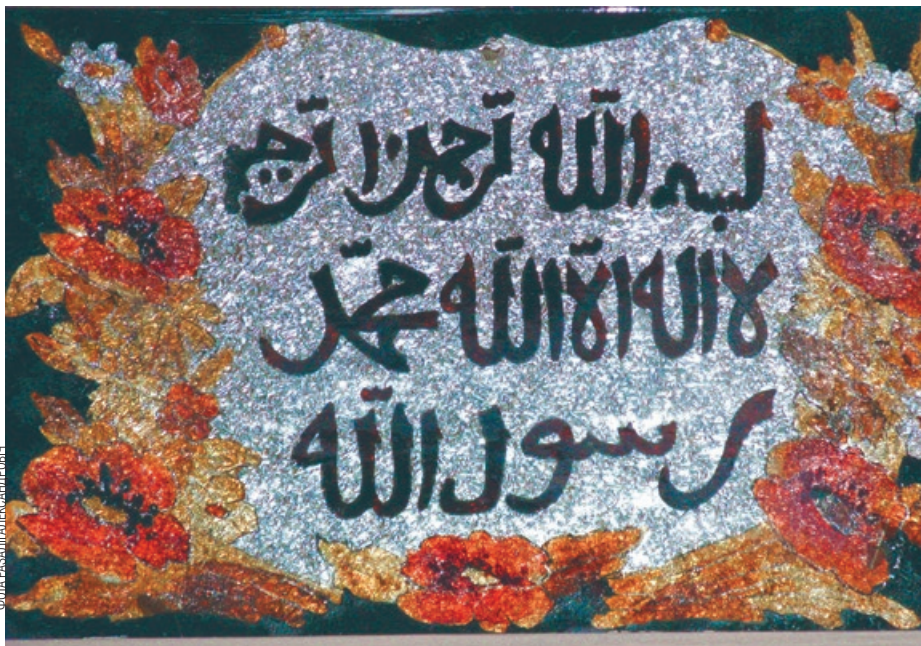 بسم الله الرحمن الرحيم
لا اله الا الله محمد
رسول الله